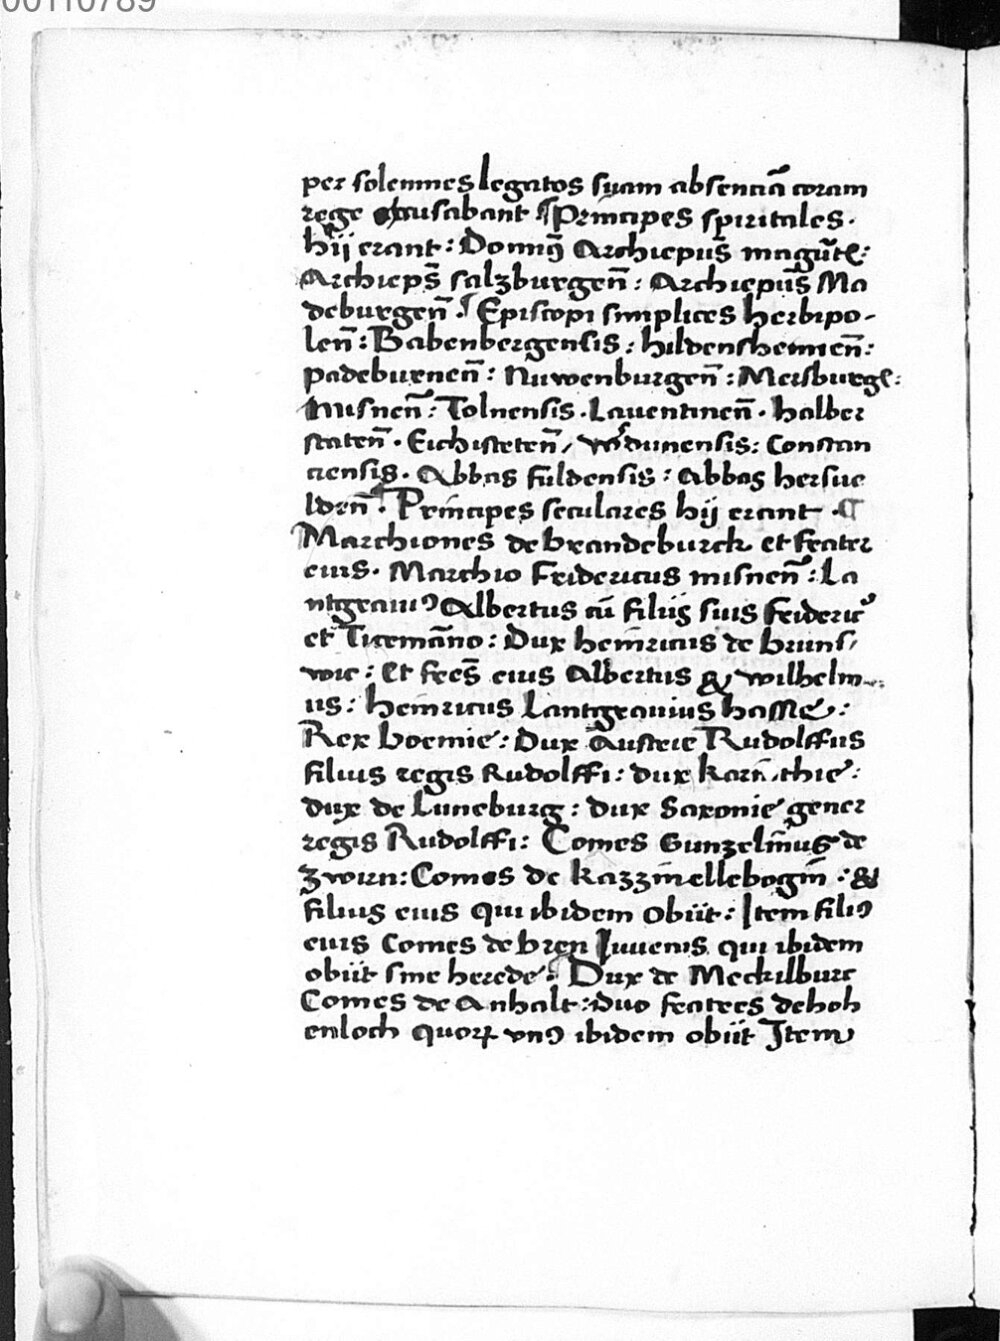 00110789
per solemnes legatos suam absenciā coram
rege excusabant ¶ Principes spiritales.
hij erant: Domin9 Archiepus̄ magūt:
Archieps̄ salzburgen̄: Archiepus̄ Ma
deburgen̄. ¶ Episcopi simplices herbipo-
len̄: Babenbergensis: hildensheimen̄:
padeburnen̄: Nuwenburgen̄: Mersburg:
Misnen̄: Tolnensis. Lauentinen̄. halber
staten̄. Eichisteten̄, verdunensis: Constan
ciensis. Abbas fuldensis: Abbas hersue
lden̄. Principes seculares hij erant. ¶
Marchiones de brandeburck et frater
eius. Marchio Fridericus misnen̄: La
ntgraui9 Albertus cū filijs suis frideric9
et Ticemānno: Dux heinricus de bruns,
wic: Et frēs eius Albertus & wilhelm-
us: heinricus Lantgrauius hassie:
Rex boemie: Dux Austrie Rudolffus
filius regis Rudolffi: dux karinthie:
dux de Luneburg: dux Saxonie gener
regis Rudolffi: Comes Gunzelinus de
zwirn: Comes de kazzinellebogin: &
filius eius qui ibidem obiit: Item fili9
eius Comes de bren Iuuenis qui ibidem
obiit sine herede. Dux de Meckilburc
Comes de Anhalt: duo fratres de hoh
enloch quoꝝ vn9 ibidem obiit Item